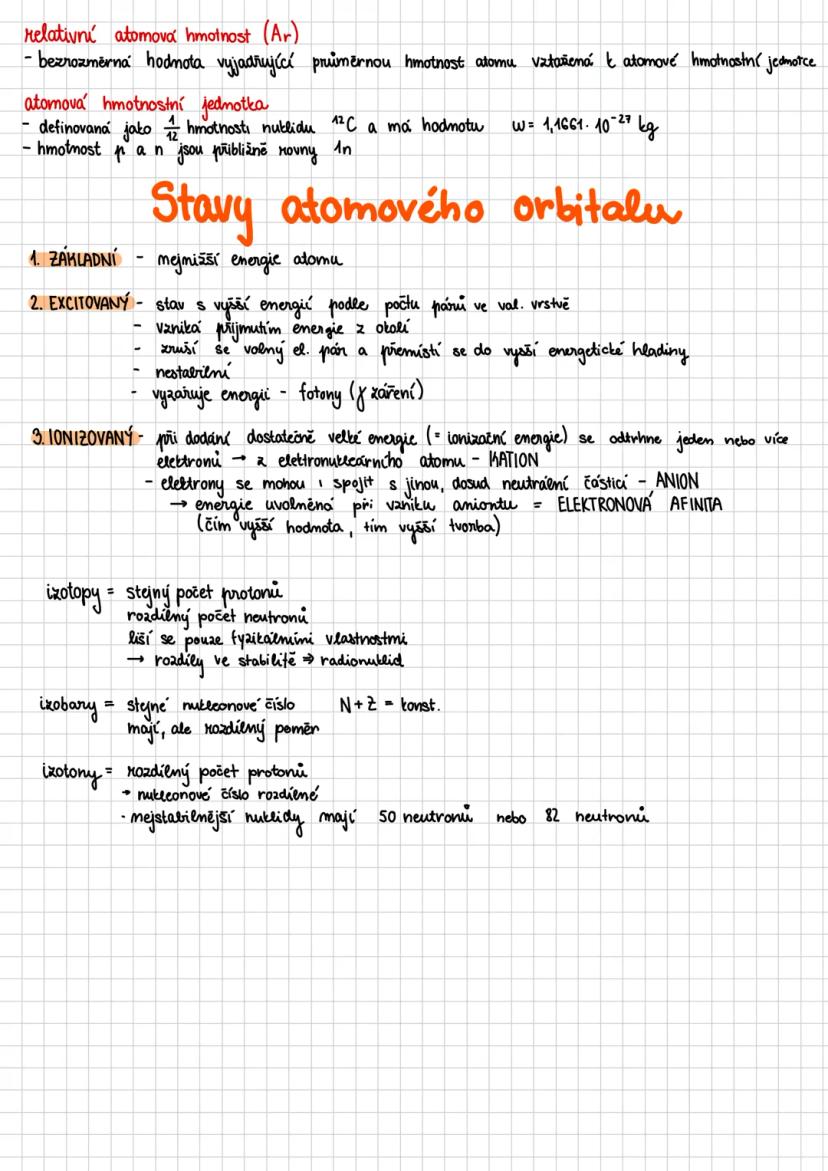 relativní atomová hmotnost (Ar)
- bezrozměrná hodnota vyjadřující průměrnou hmotnost atomu vztažená k atomové hmotnostní jednotce
atomová hmotnostní jednotka
- definovaná jako 1/12 hmotnosti nuklidu ¹²C a má hodnotu u = 1,1661 · 10⁻²⁷ kg
- hmotnost p a n jsou přibližně rovny 1n
Stavy atomového orbitalu
1. ZÁKLADNÍ - nejnižší energie atomu
2. EXCITOVANÝ - stav s vyšší energií podle počtu párů ve val. vrstvě
- vzniká přijmutím energie z okolí
- zruší se volný el. pár a přemístí se do vyšší energetické hladiny
- nestabilní
- vyzařuje energii - fotony (γ záření)
3. IONIZOVANÝ - při dodání dostatečně velké energie (= ionizační energie) se odtrhne jeden nebo více
elektronů → z elektronukleárního atomu - KATION
- elektrony se mohou i spojit s jinou, dosud neutrální částicí - ANION
→ energie uvolněná při vzniku aniontu = ELEKTRONOVÁ AFINITA
(čím vyšší hodnota, tím vyšší tvorba)
izotopy = stejný počet protonů
rozdílný počet neutronů
liší se pouze fyzikálními vlastnostmi
→ rozdíly ve stabilitě ⇒ radionuklid
izobary = stejné nukleonové číslo N + Z = konst.
mají, ale rozdílný poměr
izotony = rozdílný počet protonů
→ nukleonové číslo rozdílné
· nejstabilnější nuklidy mají 50 neutronů nebo 82 neutronů